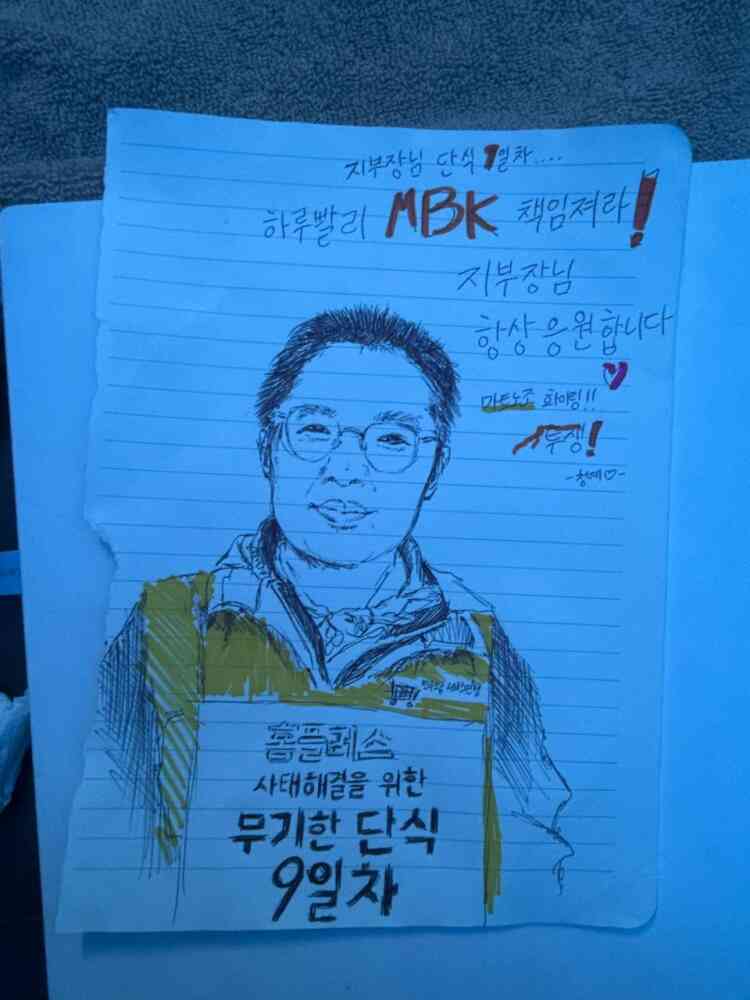 지부장님 단식 9일차....
하루빨리 MBK 책임져라!
지부장님
항상 응원합니다
마트노조 화이팅!!
투쟁!
홈플러스
사태해결을 위한
무기한 단식
9일차